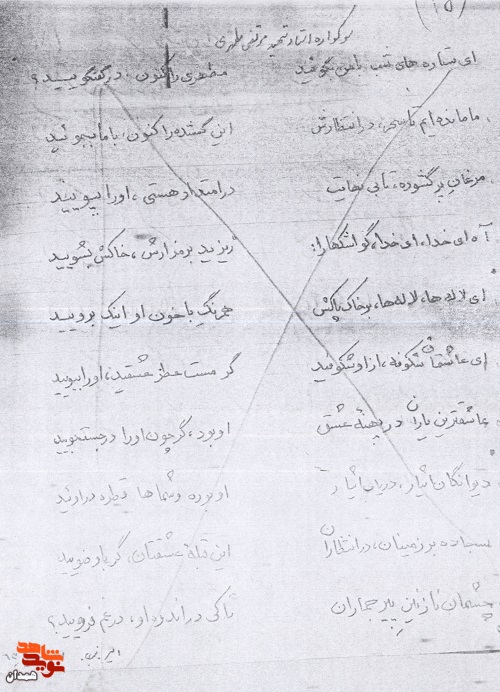 (۱۵)
سوگواره استاد شهید مرتضی مطهری
ای ستاره های شب با من بگوئید مطهری را کنون در
ما مانده ایم تا سحر، در انتظارش این گمشده را کنون، با ما بموئید
مرغان پر گشوده، تا بی نهایت در امتداد هستی، او را بپوئید
آه ای خدا، ای خدا، گو اشکها را: ریزید بر مزارش، خاکش بشوئید
ای لاله ها، لاله ها، بر خاک پاکش همرنگ با خون او اینک بروئید
ای عاشقان شکوفه، از او شکوفید گر مست عطر عشقید، او را ببوئید
عاشقترین یاران در پهنهٔ عشق او بود، گر چون او را در جستجوئید
دیوانگان ایثار، دریای ایثار او بوده و شماها قطره در اوئید
سجاده بر زمینتان، در انتظاران این قبلهٔ عشقتان، گر با وضوئید
چشمان نازنین پیر جماران تا کی در اندوه او، در غم فروئید؟
نوید شاهد
همدان